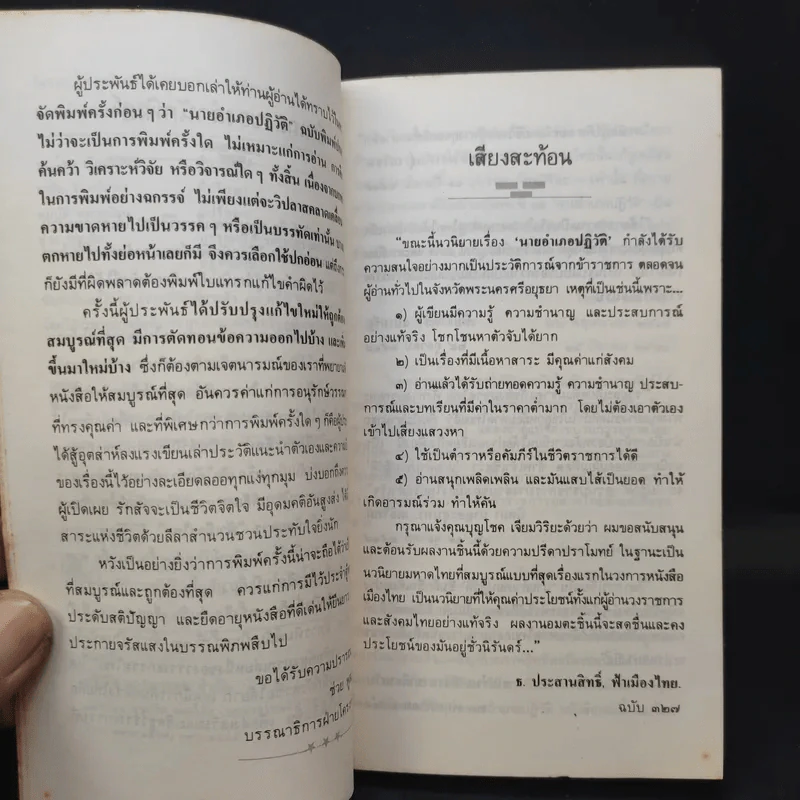 ผู้ประพันธ์ได้เคยบอกเล่าให้ท่านผู้อ่านได้ทราบไว้
จัดพิมพ์ครั้งก่อน ๆ ว่า "นายอำเภอปฏิวัติ" ฉบับพิมพ์
ไม่ว่าจะเป็นการพิมพ์ครั้งใด ไม่เหมาะแก่การอ่าน
ค้นคว้า วิเคราะห์วิจัย หรือวิจารณ์ใด ๆ ทั้งสิ้น เนื่องจาก
ในการพิมพ์อย่างฉกรรจ์ ไม่เพียงแต่จะวิปลาสคลาดเคลื่อน
ความขาดหายไปเป็นวรรค ๆ หรือเป็นบรรทัดเท่านั้น
ตกหายไปทั้งย่อหน้าเลยก็มี จึงควรเลือกใช้ปกอ่อน
ก็ยังมีที่ผิดพลาดต้องพิมพ์ใบแทรกแก้ไขคำผิดไว้
ครั้งนี้ผู้ประพันธ์ได้ปรับปรุงแก้ไขใหม่ให้ถูกต้อง
สมบูรณ์ที่สุด มีการตัดทอนข้อความออกไปบ้าง
ขึ้นมาใหม่บ้าง ซึ่งก็ต้องตามเจตนารมณ์ของเราที่พยายาม
หนังสือให้สมบูรณ์ที่สุด อันควรค่าแก่การอนุรักษ์วรรณ
ที่ทรงคุณค่า และที่พิเศษกว่าการพิมพ์ครั้งใด ๆ ก็คือ
ได้สู้อุตส่าห์ลงแรงเขียนเล่าประวัติแนะนำตัวเองและความ
ของเรื่องนี้ไว้อย่างละเอียดลออทุกแง่ทุกมุม บ่งบอกถึง
ผู้เปิดเผย รักสัจจะเป็นชีวิตจิตใจ มีอุดมคติอันสูงส่ง
สาระแห่งชีวิตด้วยลีลาสำนวนชวนประทับใจยิ่งนัก
หวังเป็นอย่างยิ่งว่าการพิมพ์ครั้งนี้น่าจะถือได้ว่า
ที่สมบูรณ์และถูกต้องที่สุด ควรแก่การมีไว้ประจำ
ประดับสติปัญญา และยืดอายุหนังสือที่ดีเด่นให้ยืน
ประกายจรัสแสงในบรรณพิภพสืบไป
ขอได้รับความปรารถ
ช่วย
บรรณาธิการฝ่าย
เสียงสะท้อน
"ขณะนี้นวนิยายเรื่อง 'นายอำเภอปฏิวัติ' กำลังได้รับ
ความสนใจอย่างมากเป็นประวัติการณ์จากข้าราชการ ตลอดจน
ผู้อ่านทั่วไปในจังหวัดพระนครศรีอยุธยา เหตุที่เป็นเช่นนี้เพราะ...
๑) ผู้เขียนมีความรู้ ความชำนาญ และประสบการณ์
อย่างแท้จริง โชกโชนหาตัวจับได้ยาก
๒) เป็นเรื่องที่มีเนื้อหาสาระ มีคุณค่าแก่สังคม
๓) อ่านแล้วได้รับถ่ายทอดความรู้ ความชำนาญ ประสบ-
การณ์และบทเรียนที่มีค่าในราคาต่ำมาก โดยไม่ต้องเอาตัวเอง
เข้าไปเสี่ยงแสวงหา
๔) ใช้เป็นตำราหรือคัมภีร์ในชีวิตราชการได้ดี
๕) อ่านสนุกเพลิดเพลิน และมันแสบไส้เป็นยอด ทำให้
เกิดอารมณ์ร่วม ทำให้คัน
กรุณาแจ้งคุณบุญโชค เจียมวิริยะด้วยว่า ผมขอสนับสนุน
และต้อนรับผลงานชิ้นนี้ด้วยความปรีดาปราโมทย์ ในฐานะเป็น
นวนิยายมหาดไทยที่สมบูรณ์แบบที่สุดเรื่องแรกในวงการหนังสือ
เมืองไทย เป็นนวนิยายที่ให้คุณค่าประโยชน์ทั้งแก่ผู้อ่านวงราชการ
และสังคมไทยอย่างแท้จริง ผลงานอมตะชิ้นนี้จะสดชื่นและคง
ประโยชน์ของมันอยู่ชั่วนิรันดร์..."
ธ. ประสานสิทธิ์, ฟ้าเมืองไทย.
ฉบับ ๓๒๗